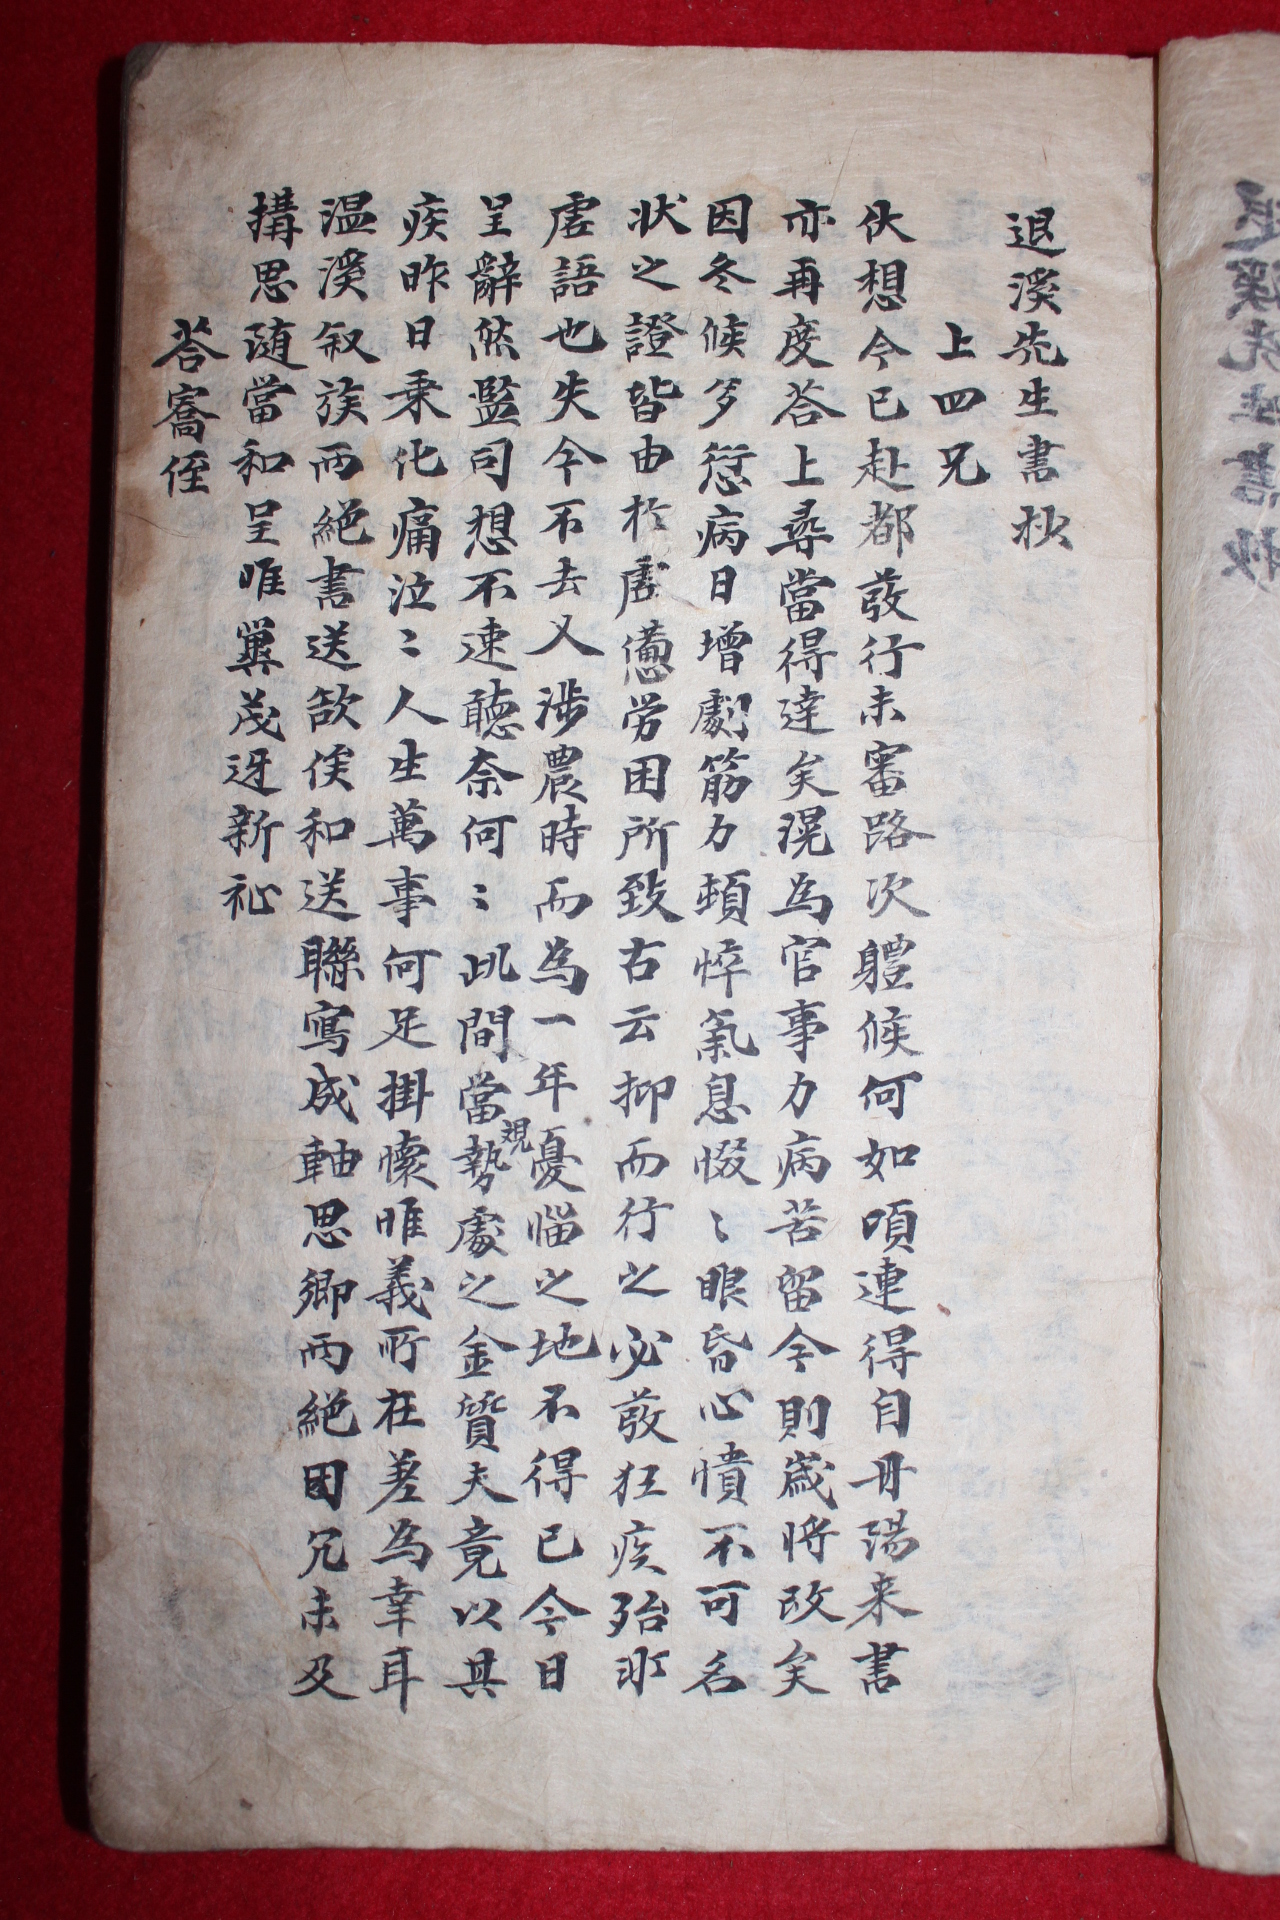 退溪先生書抄
上四兄
伏想今已赴都發行未審路次軆候何如頃連得自丹陽来書
亦再度答上尋當得達矣滉為官事力病苦留今則歲將改矣
因冬候多愆病日增劇筋力頓悴氣息惙〻眼昏心憒不可名
状之證皆由扵虛憊勞困所致古云抑而行之必發狂疾殆非
虛語也失今不去又涉農時而為一年憂惱之地不得已今日
呈辭然監司想不速聽奈何〻此間當觀勢處之金質夫竟以其
疾昨日乗化痛泣〻人生萬事何足掛懷唯義所在差為幸耳
温溪叙族兩絕書送欲俟和送聯寫成軸思鄉兩絕因冗未及
搆思随當和呈唯冀茂迓新祉
答寯侄
退溪先生書抄